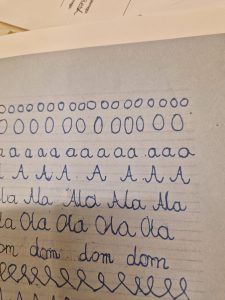 o o o o o o o o o o o o o o o o
O O O O O O O O O O O O
a a a a a a a a a a a
A A A A A A
Ala Ala Ala Ala
Ola Ola Ola Ola
dom dom dom